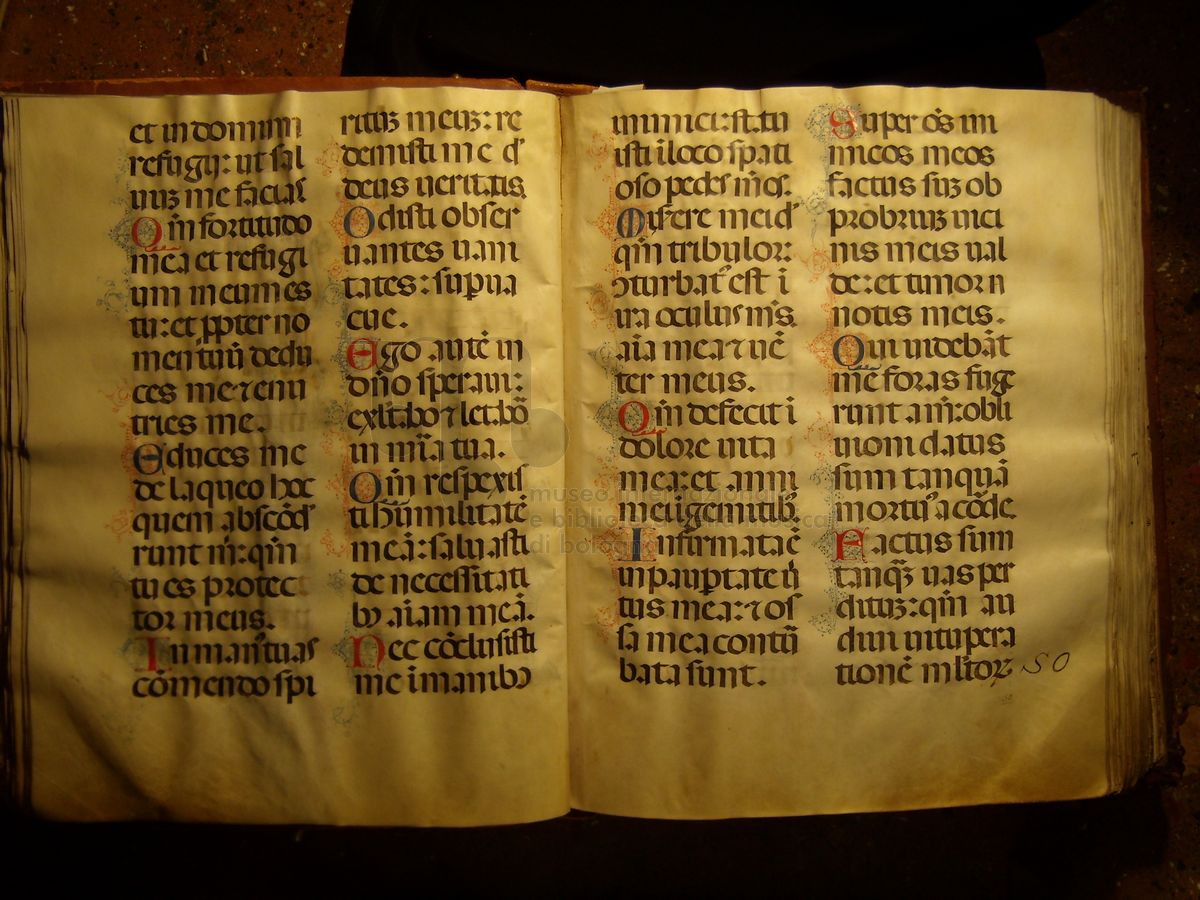 et in domum
refugij: ut sal
uuz me facias
Qm̄ fortitudo
mea et refugi
um meum es
tu: et ꝓpter no
men tuū dedu
ces me ⁊ enu
tries me.
Educes me
de laqueo hoc
quem abscōd̾
runt m̄: qm̄
tu es protec
tor meus.
In man̾ tuas
cōmendo spi
rituz meuz: re
demisti me d̾
deus ueritatis
Odisti obser
uantes uani
tates: sup̱ua
cue.
Ego autē in
dn̄o speraui:
exl̄tabo ⁊ letabō
in mīa tua.
Qm̄ respexis
ti hūmilitatē
meā: saluasti
de necessitati
bꝰ aīam meā.
Nec cōclusisti
me ī manibꝰ
inimici: statu
isti ī loco spati
oso pedes meos.
Miserere mei d̾
qm̄ tribulor:
ↄturbat̾ est ī
ira oculus m̄s.
aīa mea ⁊ uē
ter meus.
Qm̄ defecit ī
dolore uita
mea: et anni
mei ī gemitib̾.
Infirmata ē
in paup̱tate uir
tus mea: ⁊ os
sa mea contur
bata sunt.
Super oēs in
imicos meos
factus suz ob
probriuz uici
nis meis ual
de: et timor n
notis meis.
Qui uidebāt
me foras fuge
runt a m̄: obli
uioni datus
sum tanquā
mortu̾ a corde.
Factus sum
tanq̄z uas per
dituz: qm̄ au
diui uitupera
tionē mltor
50
museo internazionale
e biblioteca della musica
di bologna